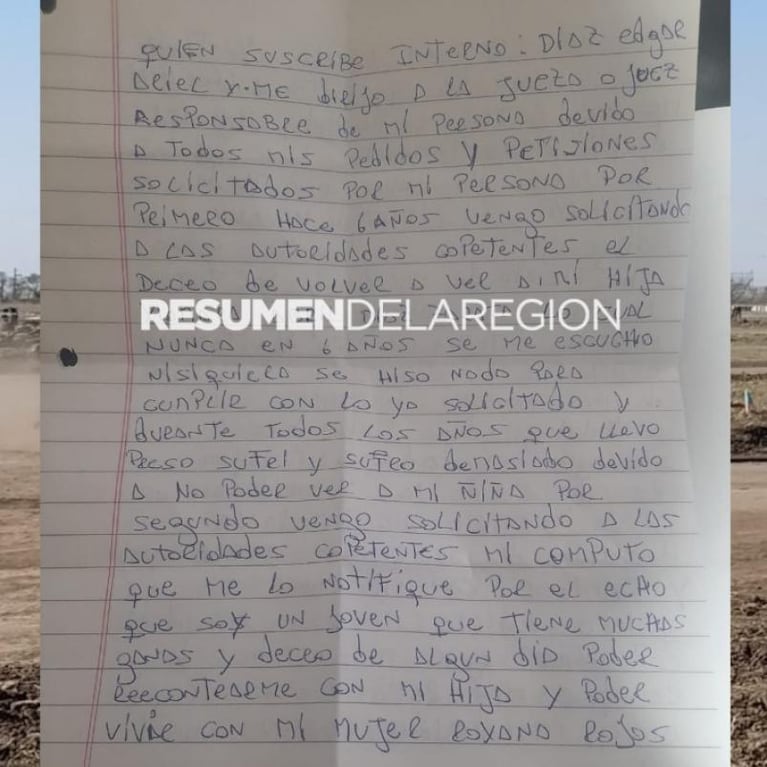 QUIEN SUSCRIBE INTERNO: DIAZ edgar
Ariel Y.ME dirijo A LA JUEZA O JUEZ
RESPONSABLE de MI PERSONA devido
A TODOS MIS Pedidos Y PETISIONES
SOLICITADOS POR MI PERSONA POR
PRIMERO HACE 6 AÑOS VENGO SOLICITANDO
A LAS AUTORIDADES COPETENTES el
DECEO de VOLVER A VER A MI HIJA
RESUMENDELAREGION
DIAZ CUAL
NUNCA EN 6 AÑOS SE ME ESCUCHO
NISIQUIERA SE HISO NADA PARA
CUNPLIR CON LO YA SOLICITADO Y
dURANTE TODOS LOS AÑOS QUE LLEVO
PRESO SUFRI Y SUFRO DEMASIADO devido
A NO PODER VER A MI ÑIÑA POR
SEGUNDO VENGO SOLICITANDO A LAS
AUTORIDADES COPETENTES MI COMPUTO
QUE ME LO NOTIFIQUE POR EL ECHO
QUE SOY UN JOVEN QUE TIENE MUCHAS
GANAS Y DECEO DE ALGUN DIA PODER
REECONTRARME CON MI HIJA Y PODER
VIVIR CON MI MUJER ROXANA ROJAS